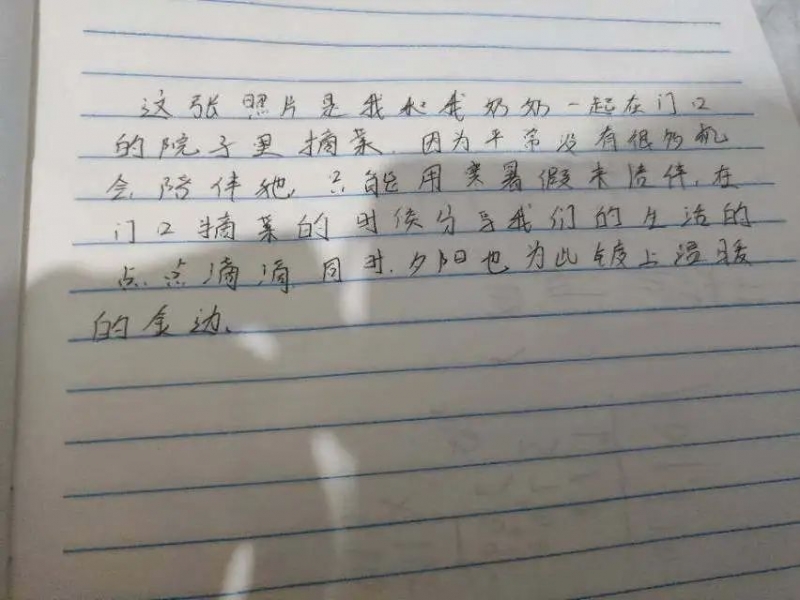 这张照片是我和我奶奶一起在门口
的院子里摘菜.因为平常没有很多机
会陪伴她,只能用寒暑假来陪伴,在
门口摘菜的时候分享我们的生活的
点点滴滴,同时,夕阳也为此镀上温暖
的金边、